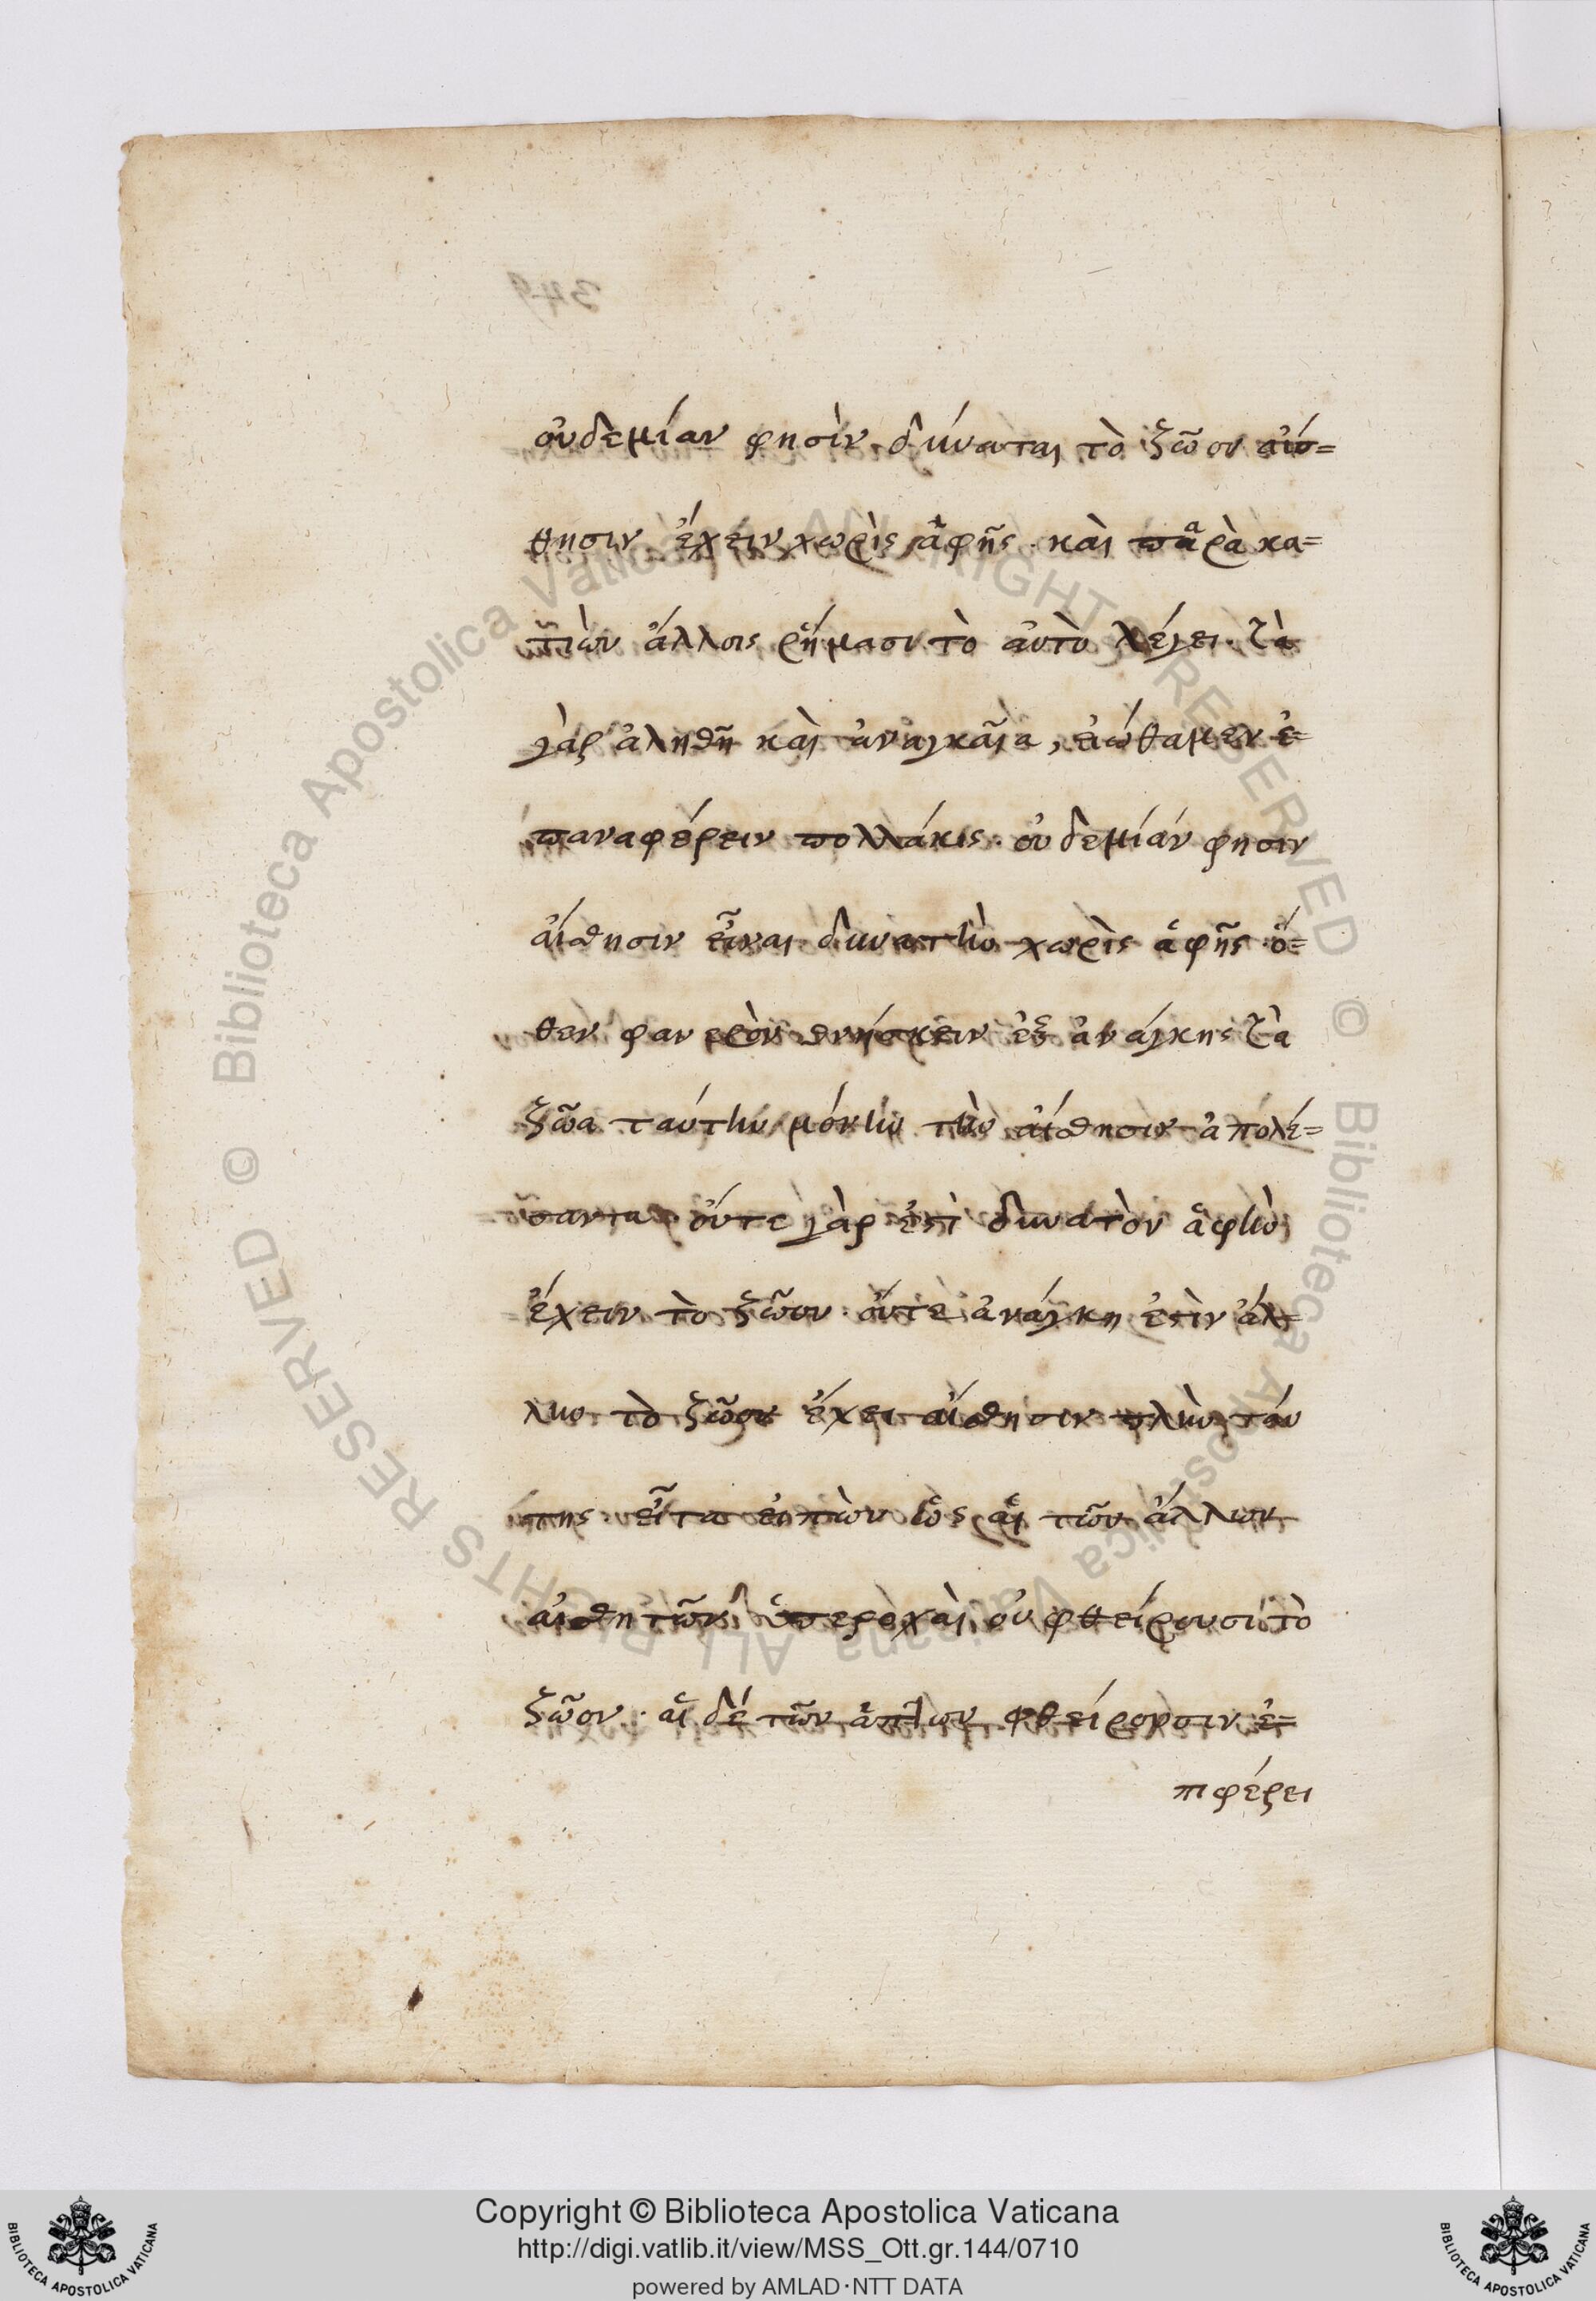 οὐδεμίαν φησὶν δύναται τὸ ζῶον αἴσ=
θησιν ἔχειν χωρὶς ἁφῆς. καὶ παρὰ κα=
τιὼν ἄλλοις ῥήμασι τὸ αὐτὸ λέγει. τὰ
γὰρ ἀληθῆ καὶ ἀναγκαῖα, εἰώθαμεν ἐ=
παναφέρειν πολλάκις. οὐδεμίαν φησιν
αἴσθησιν εἶναι δυνατὴν χωρὶς ἁφῆς ὅ=
θεν φανερὸν θνήσκειν ἐξ ἀνάγκης τὰ
ζῶα ταύτην μόνην τὴν αἴσθησιν ἀπολέ=
σαντα. οὔτε γὰρ ἐστὶ δυνατὸν ἁφὴν
ἔχειν τὸ ζῶον. οὔτε ἀνάγκη ἐστὶν ἄλ=
λην τὸ ζῶον ἔχει αἴσθησιν πλὴν ταύ
της. εἶτα εἰπὼν ὡς αἱ τῶν ἄλλων
αἰσθητῶν ὑπεροχαὶ οὐ φθείρουσι τὸ
ζῶον. αἱ δὲ τῶν ἁπτῶν φθείρουσιν ἐ=
πιφέρει
349
Copyright © Biblioteca Apostolica Vaticana
http://digi.vatlib.it/view/MSS_Ott.gr.144/0710
powered by AMLAD·NTT DATA
BIBLIOTECA APOSTOLICA VATICANA
BIBLIOTECA APOSTOLICA VATICANA
© Biblioteca Apostolica Vaticana ALL RIGHTS RESERVED
© Biblioteca Apostolica Vaticana ALL RIGHTS RESERVED